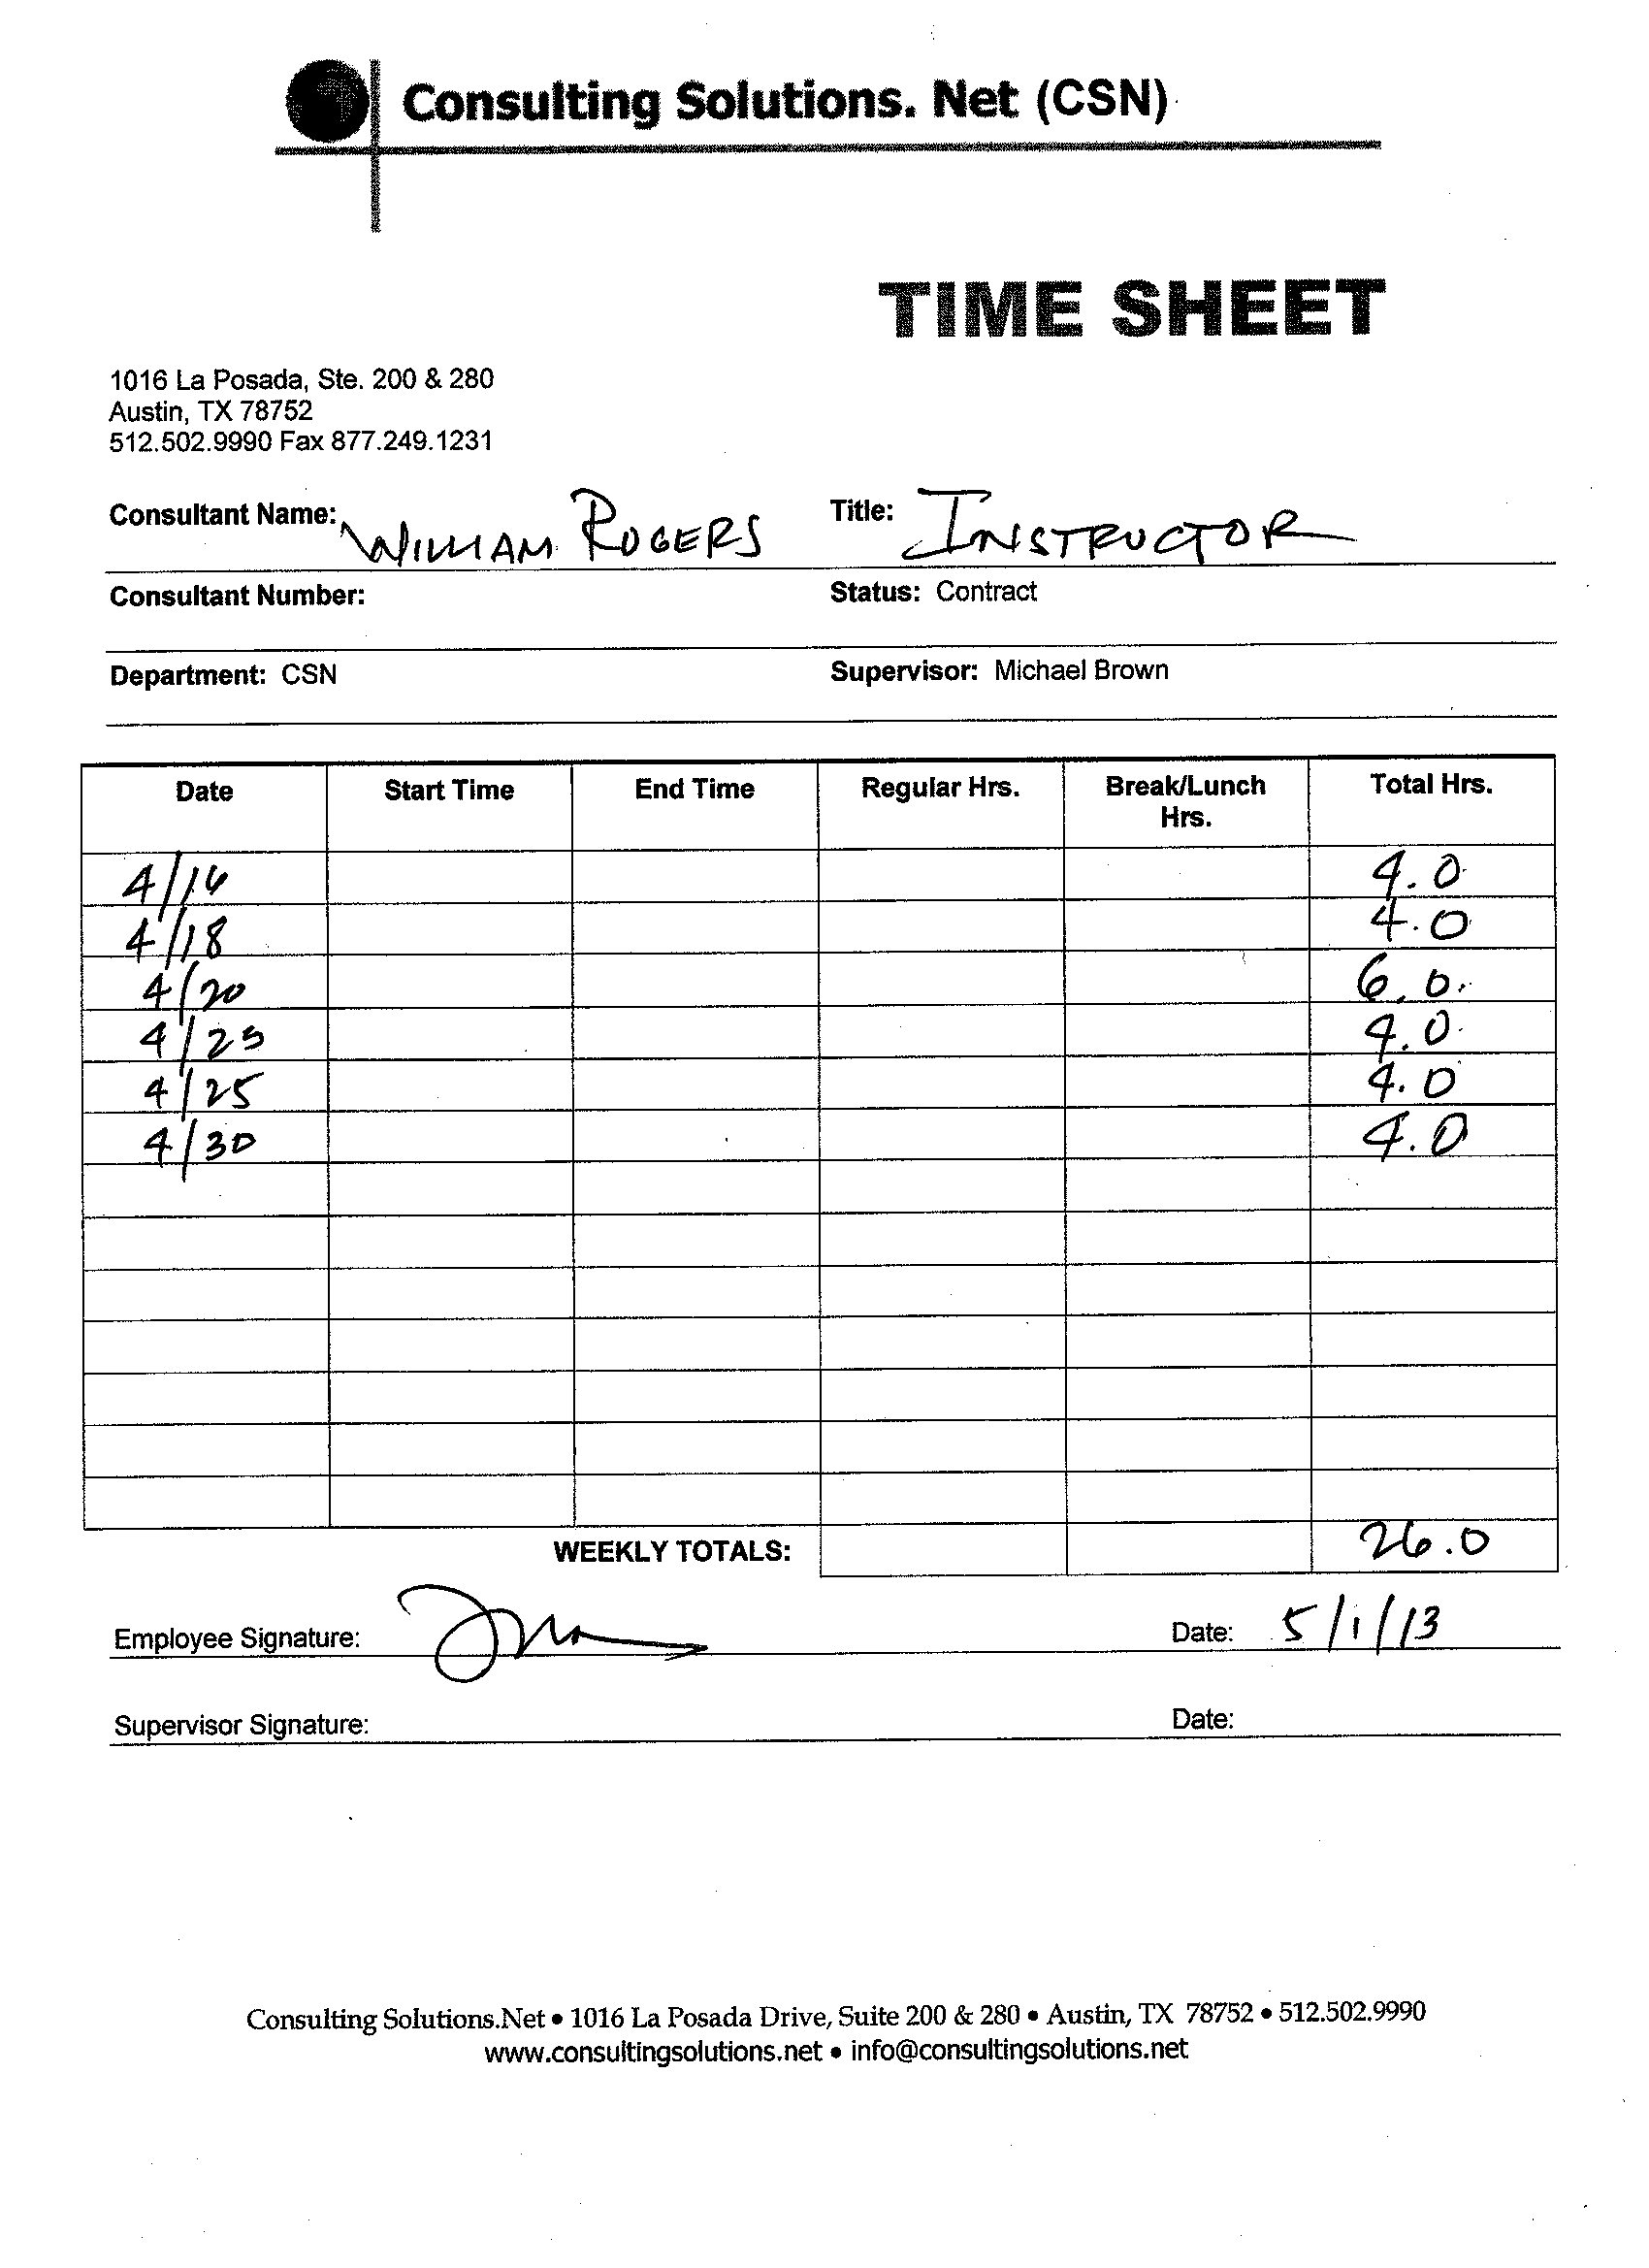 Consulting Solutions. Net (CSN)
TIME SHEET
1016 La Posada, Ste. 200 & 280
Austin, TX 78752
512.502.9990 Fax 877.249.1231
Consultant Name: WILLIAM ROGERS Title: INSTRUCTOR
Consultant Number: Status: Contract
Department: CSN Supervisor: Michael Brown
Date Start Time End Time Regular Hrs. Break/Lunch Hrs. Total Hrs.
4/16 4.0
4/18 4.0
4/20 6.0
4/23 4.0
4/25 4.0
4/30 4.0
WEEKLY TOTALS: 26.0
Employee Signature: Date: 5/1/13
Supervisor Signature: Date:
Consulting Solutions.Net • 1016 La Posada Drive, Suite 200 & 280 • Austin, TX 78752 • 512.502.9990
www.consultingsolutions.net • info@consultingsolutions.net